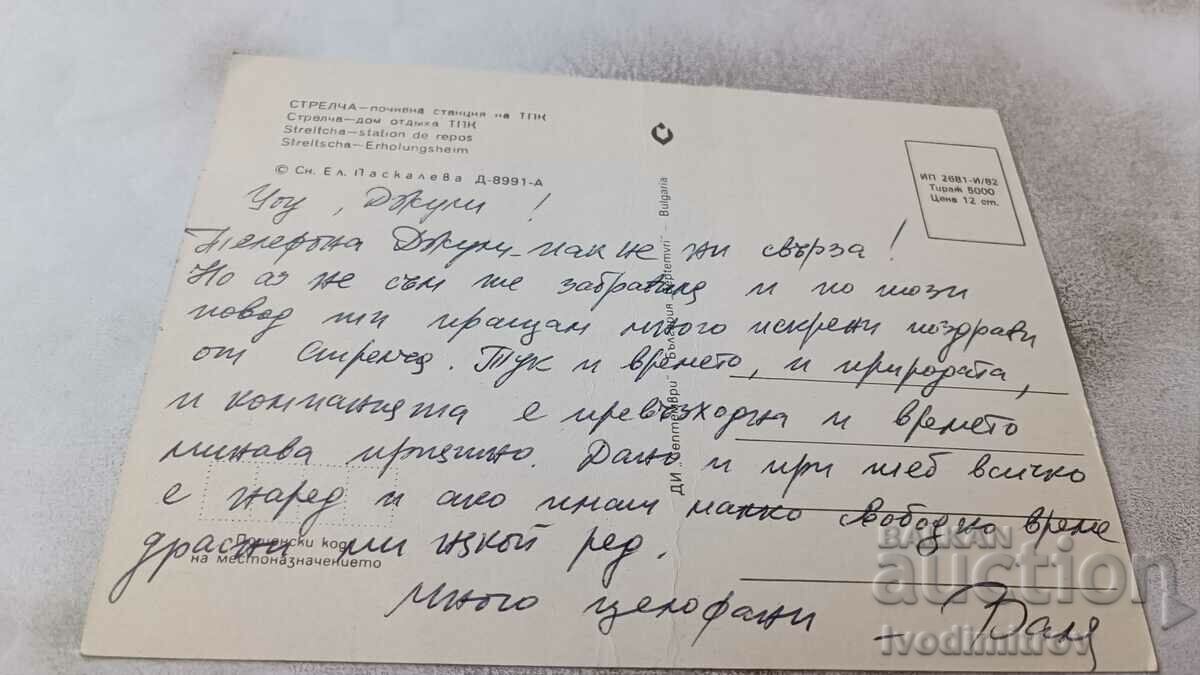 СТРЕЛЧА — почивна станция на ТПК
Стрелча — дом отдыха ТПК
Streltcha — station de repos
Streltscha — Erholungsheim
© Сн. Ел. Паскалева Д-8991-А
ИП 2681-И/82
Тираж 5000
Цена 12 ст.
ДИ „Септември“ България „Septemvri“ — Bulgaria
Уоу, Джули!
Телефона Джули-пак не ни свърза!
Но аз не съм те забравила и по този
повод ти пращам много искрени поздрави
от Стрелча. Тук и времето, и природата,
и компанията е превъзходна и времето
минава приятно. Дано и при теб всичко
е наред и ако имаш малко свободно време
драсни ми някой ред.
Много целофани
– Ваня
Пощенски код
на местоназначението
BALKAN
auction
ivodimitrov